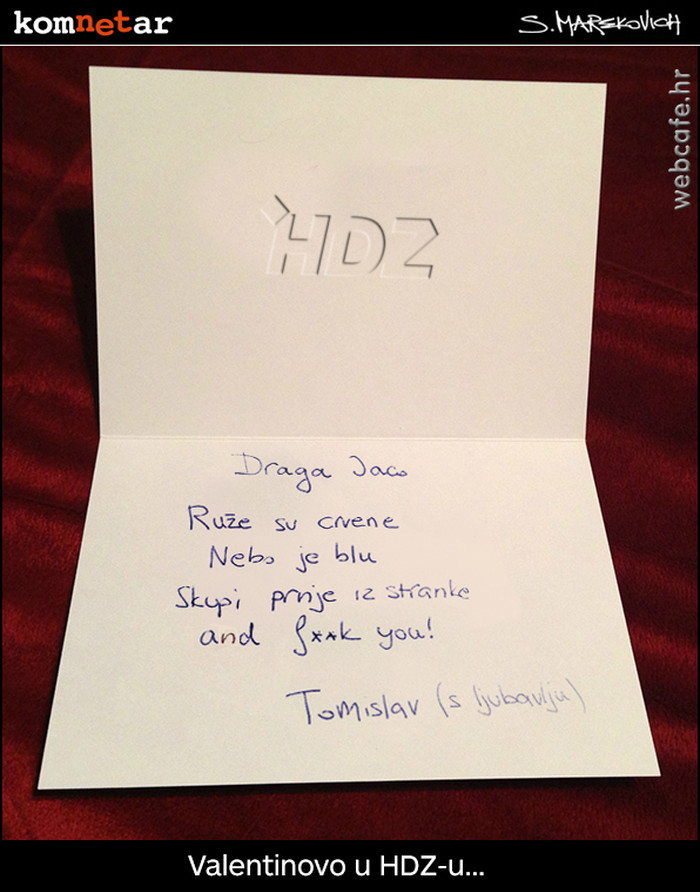 komnetar
S. MAREKOVICH
webcafe.hr
HDZ
Draga Jaco
Ruže su crvene
Nebo je blu
Skupi prnje iz stranke
and f**k you!
Tomislav (s ljubavlju)
Valentinovo u HDZ-u...